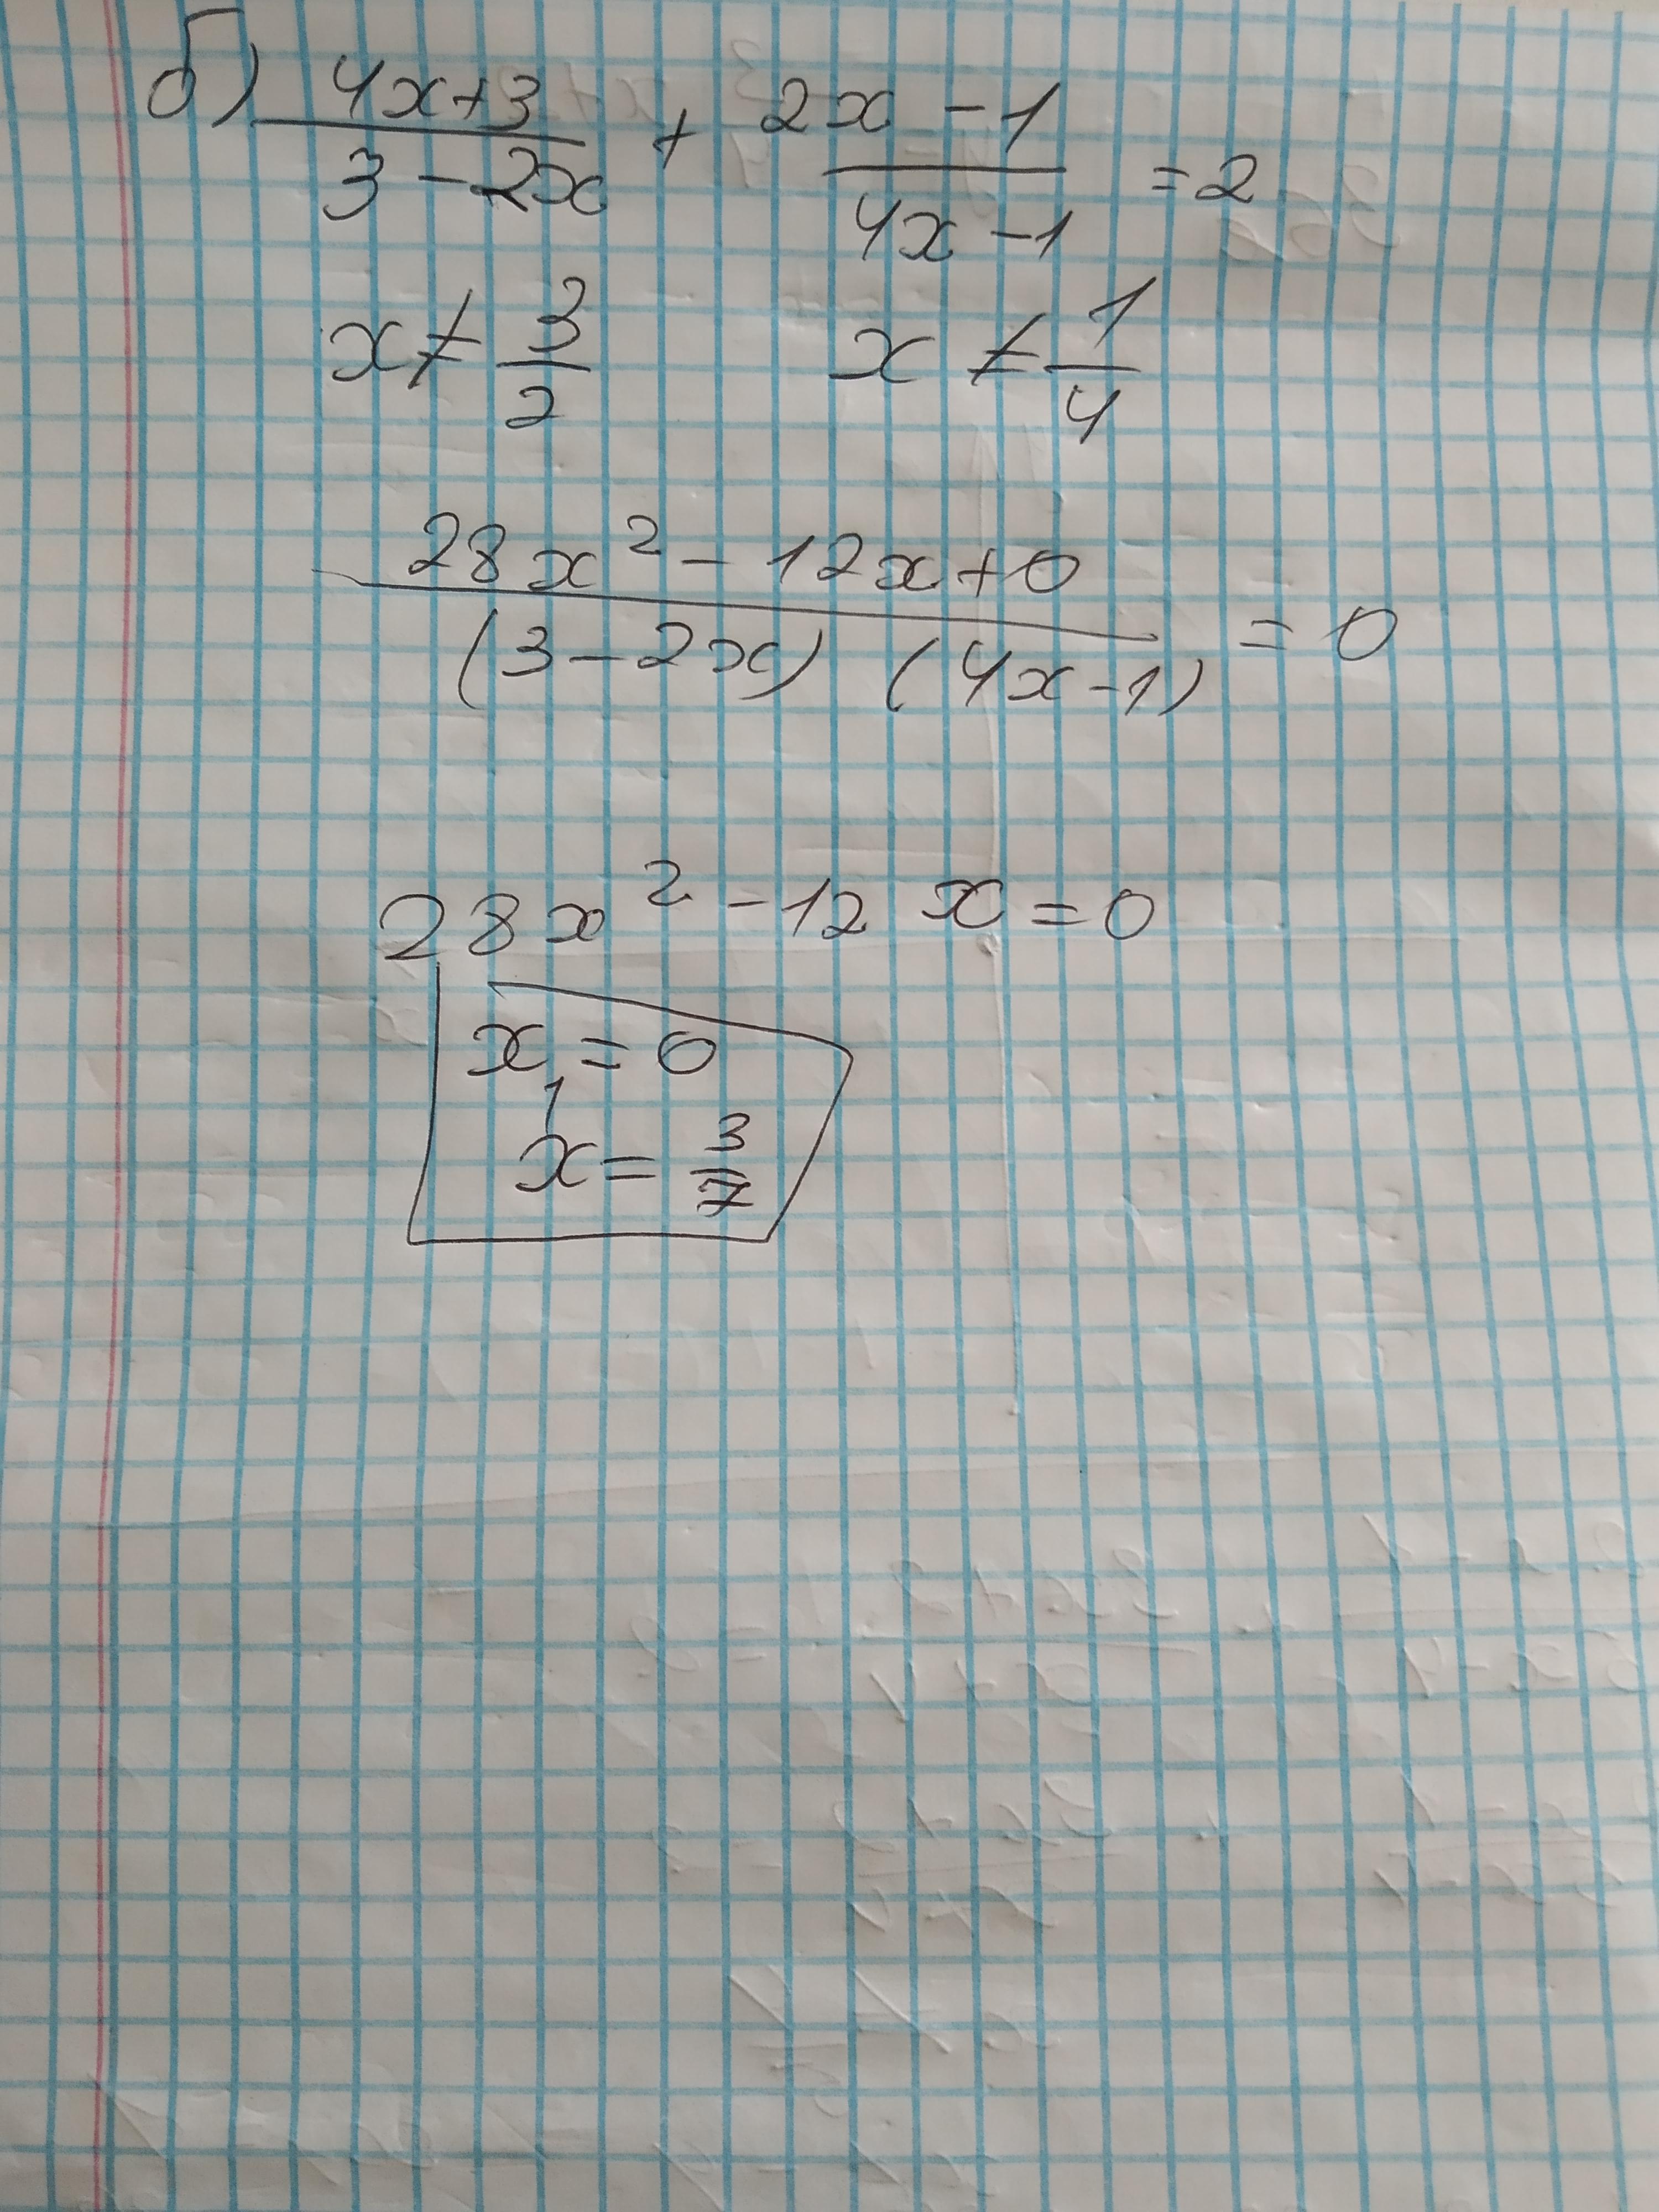 б) (4x+3)/(3-2x) + (2x-1)/(4x-1) = 2
x ≠ 3/2 x ≠ 1/4
(28x² - 12x + 0)/((3-2x) (4x-1)) = 0
28x² - 12x = 0
x₁ = 0
x = 3/7